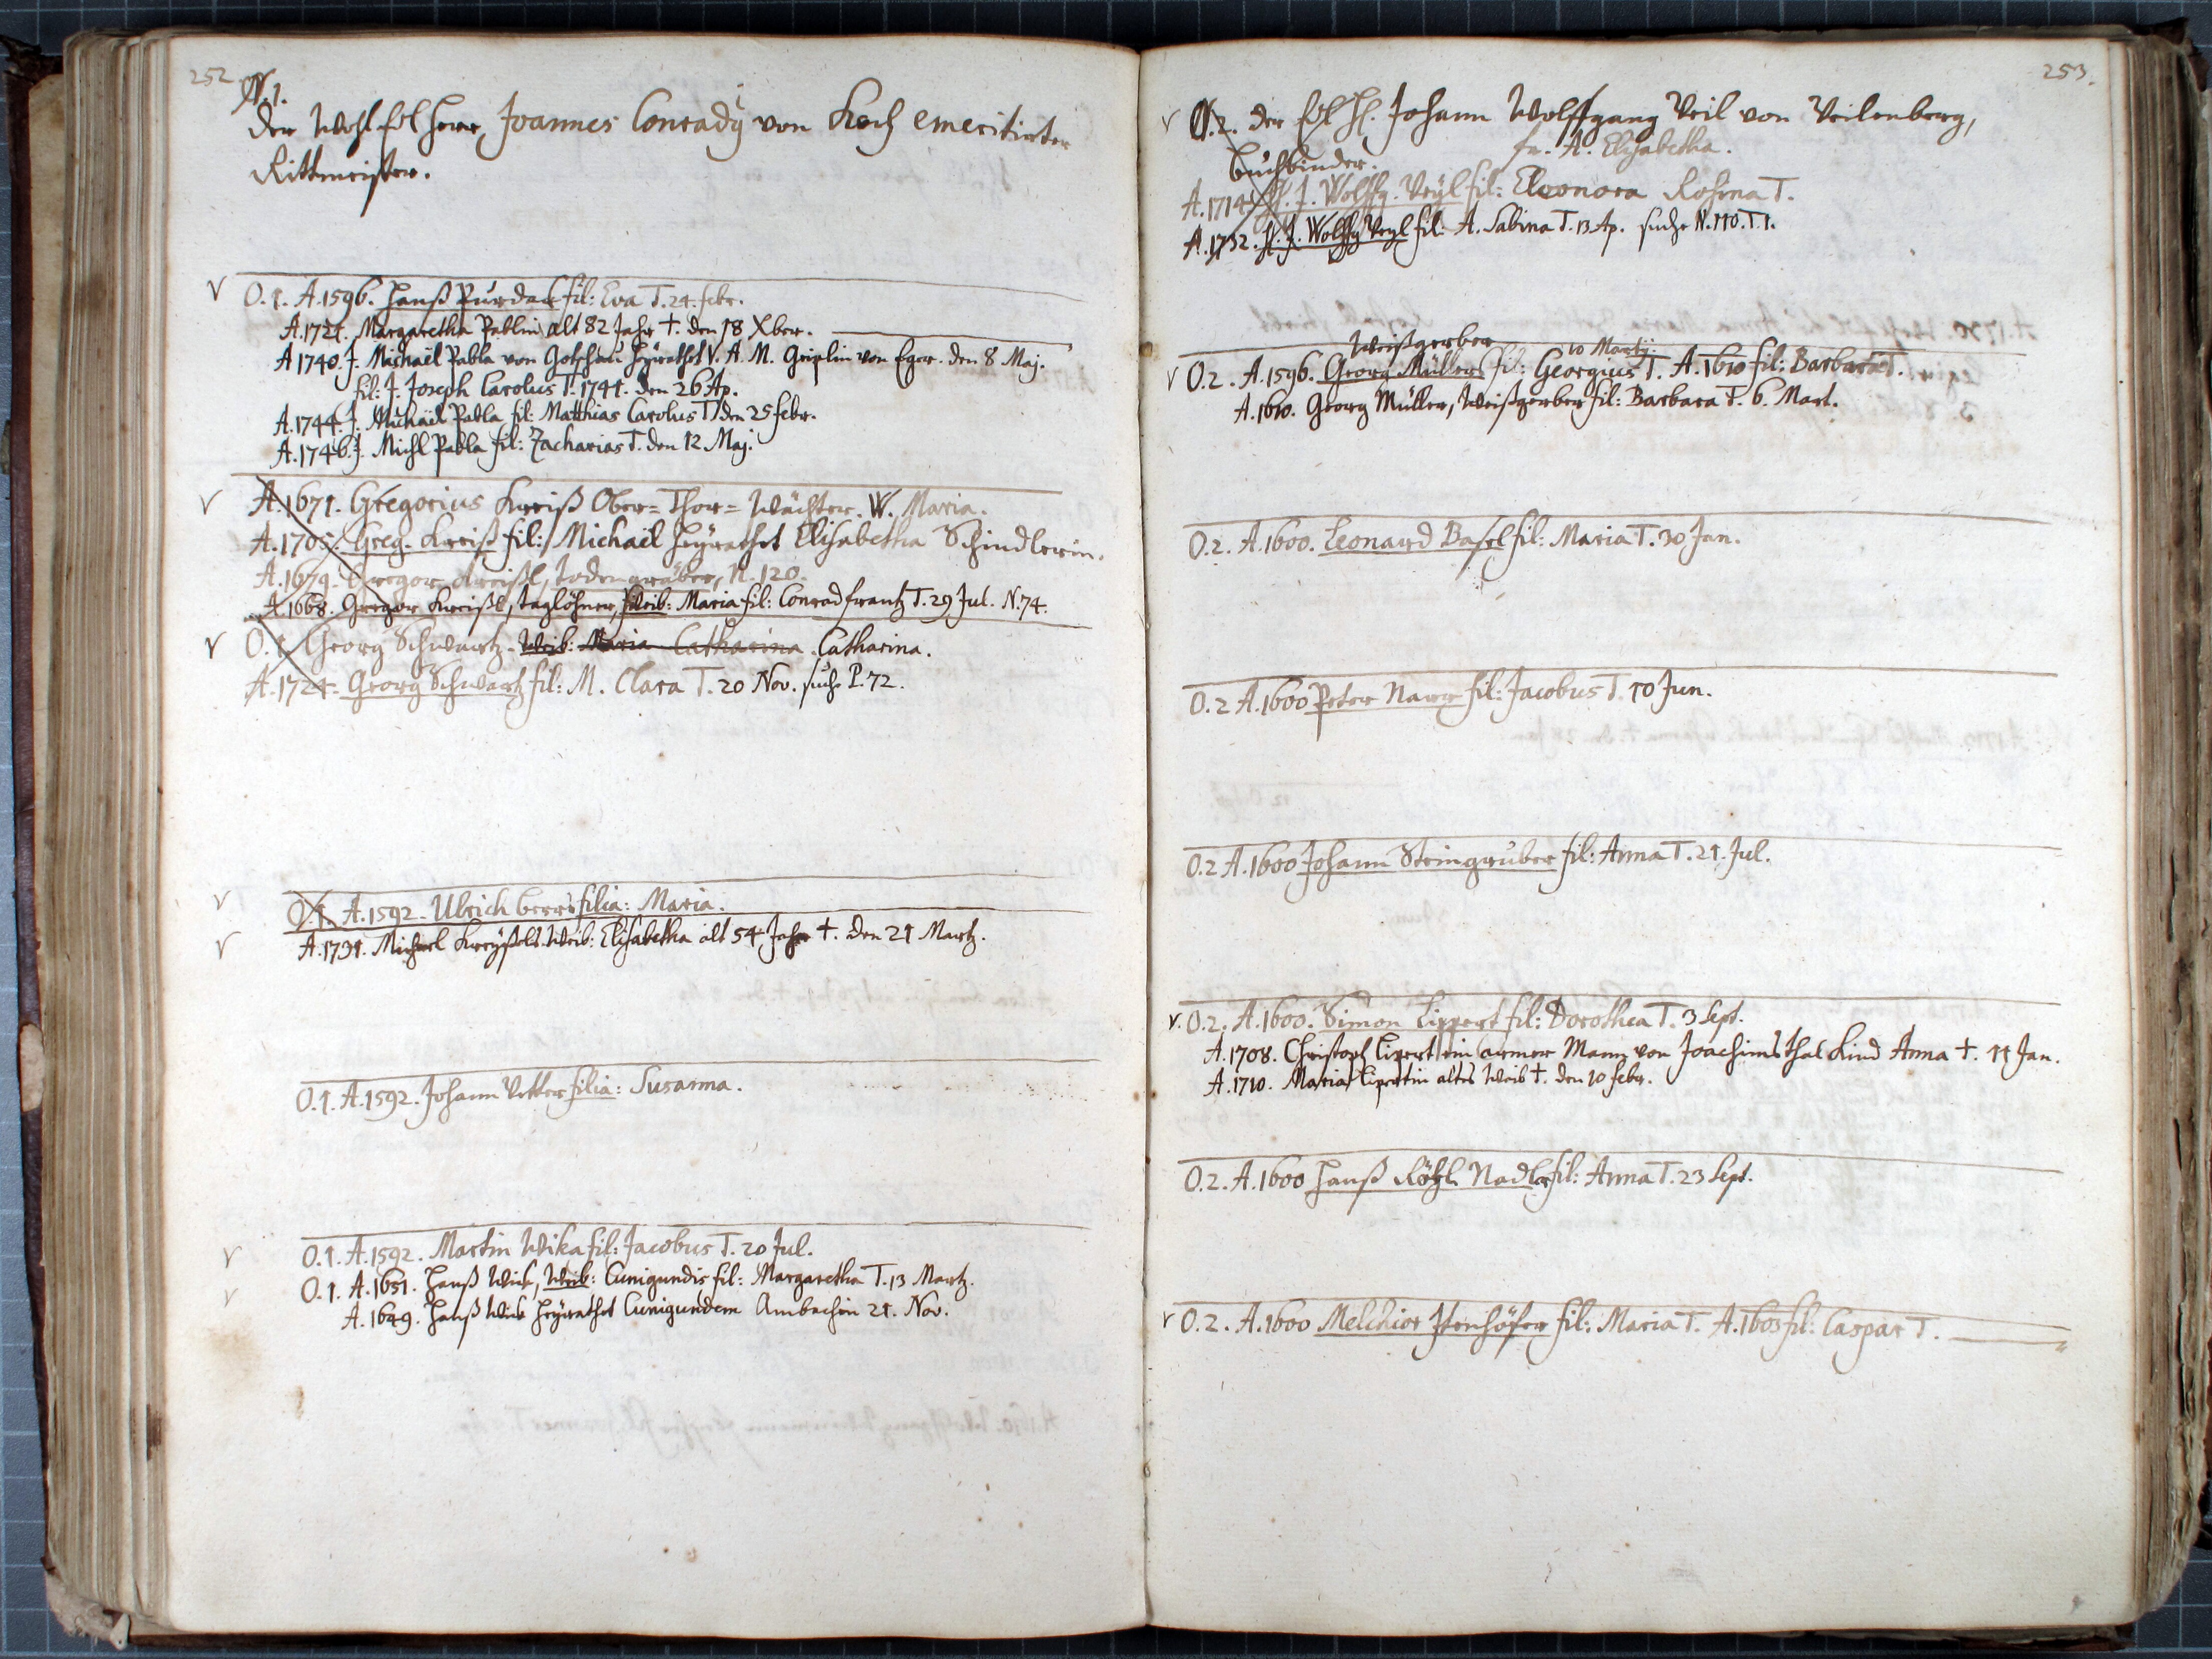 252
N. 1.
Der Wohl Edl Herr Joannes Conrady von Koch emeritirter
Rittmeister.
V O. 1. A. 1596. Hanß Purdac fil: Eva T. 24. febr.
A. 1721. Margaretha Pablin alt 82 Jahr †. den 18 Xber.
A 1740. J. Michaël Pabla von Gotschau heÿrathet V. A. M. Griplin von Eger. den 8 Maj.
fil: J. Joseph Carolus T. 1741. den 26 Ap.
A. 1744. J. Michaël Pabla fil: Matthias Carolus T. den 25 febr.
A. 1746. J. Michl Pabla fil: Zacharias T. den 12 Maj.
V A. 1671. Gregorius Kreiß Ober=Thor=Wächter. W. Maria.
A. 1705. Greg. Kreiß fil: Michaël heÿrathet Elisabetha Schindlerin.
A. 1679. Gregor Kreißl, todengräber, N. 120.
A. 1668. Gregor Kreißl, taglöhner, Weib: Maria fil: Conrad frantz T. 29 Jul. N. 74.
V O. 1. Georg Schwartz. Weib: Maria Catharina. Catharina.
A. 1721. Georg Schwartz fil: M. Clara T. 20 Nov. suche P. 72.
V O. 1. A. 1592. Ulrich filia: Maria.
V A. 1731. Michael Kreÿßels Weib: Elisabetha alt 54 Jahr †. den 21 Martz.
O. 1. A. 1592. Johann Vetter filia: Susanna.
V O. 1. A. 1592. Martin Wika fil: Jacobus T. 20 Jul.
V O. 1. A. 1651. Hanß Wick, Weib: Cunigundis fil: Margaretha T. 13 Martz.
A. 1649. Hanß Wick heÿrathet Cunigundem Ambachin 21. Nov.
253.
V N. 2. Der Edl H. Johann Wolffgang Veil von Veilenberg,
fr. A. Elisabetha.
Buchbinder.
A. 1714 H. J. Wolffg. Veÿl fil: Eleonora Rosina T.
A. 1732. H. J. Wolffg Veyl fil: A. Sabina T. 13 Ap. suche N. 110. T. 1.
Weißgerber 10 Martij.
V O. 2. A. 1596. Georg Müller fil: Georgius T. A. 1610 fil: Barbara T.
A. 1610. Georg Müller, Weißgerber fil: Barbara T. 6. Mart.
O. 2. A. 1600. Leonard Basel fil: Maria T. 30 Jan.
O. 2 A. 1600 Peter Narr fil: Jacobus T. 10 Jun.
O. 2 A. 1600 Johann Steingruber fil: Anna T. 21. Jul.
V. O. 2. A. 1600. Simon Lippert fil: Dorothea T. 3 Sept.
A. 1708. Christoph Lipert ein armer Mann von Joachimsthal Kind Anna †. 11 Jan.
A. 1710. Maria Lipertin altes Weib †. den 10 febr.
O. 2. A. 1600 Hanß Röhl Nadler fil: Anna T. 23 Sept.
V O. 2. A. 1600 Melchior fil: Maria T. A. 1603 fil: Caspar T.